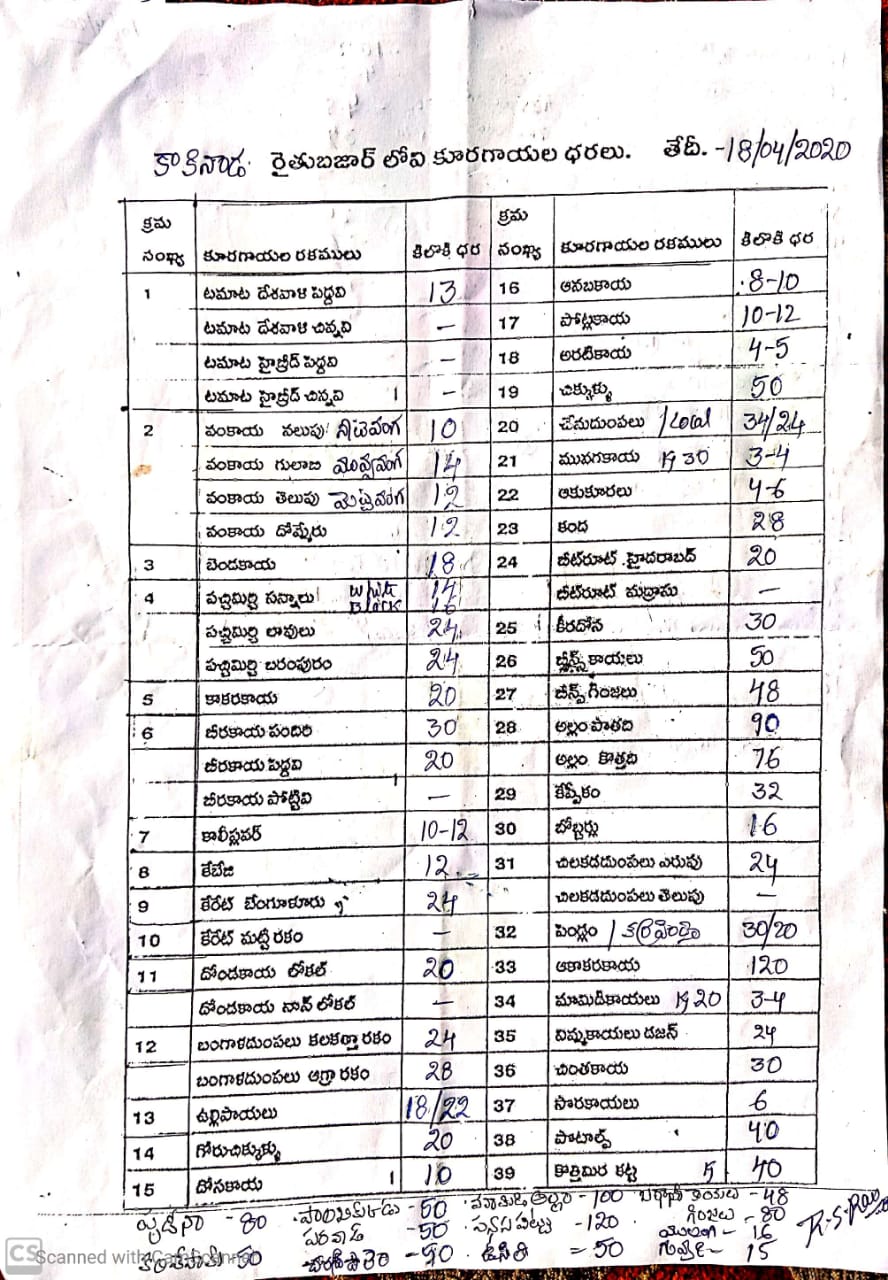 కాకినాడ రైతుబజార్ లోని కూరగాయల ధరలు. తేదీ.-18/04/2020
క్రమ సంఖ్య కూరగాయల రకములు కిలోకి ధర
1 టమాట దేశవాళి పెద్దవి 13
టమాట దేశవాళి చిన్నవి —
టమాట హైబ్రీడ్ పెద్దవి —
టమాట హైబ్రీడ్ చిన్నవి —
2 వంకాయ నలుపు/ నీటివంగ 10
వంకాయ గులాబి మువ్వవంగ 14
వంకాయ తెలుపు మెట్టవంగ 12
వంకాయ దోమ్మేరు 12
3 బెండకాయ 18
4 పచ్చిమిర్చి సన్నాలు White 14
Black 16
పచ్చిమిర్చి లావులు 24
పచ్చిమిర్చి బరంపురం 24
5 కాకరకాయ 20
6 బీరకాయ పందిరి 30
బీరకాయ పెద్దవి 20
బీరకాయ పొట్టివి —
7 కాలీఫ్లవర్ 10-12
8 కేబేజి 12
9 కేరేట్ బేంగూళూరు 24
10 కేరేట్ మట్టి రకం —
11 దోండకాయ లోకల్ 20
దోండకాయ నాన్ లోకల్ —
12 బంగాళదుంపలు కలకత్తా రకం 24
బంగాళదుంపలు ఆగ్రా రకం 28
13 ఉల్లిపాయలు 18/22
14 గోరుచిక్కుళ్ళు 20
15 దోసకాయ 10
క్రమ సంఖ్య కూరగాయల రకములు కిలొకి ధర
16 ఆనబకాయ 8-10
17 పోట్లకాయ 10-12
18 అరటికాయ 4-5
19 చిక్కుళ్ళు 50
20 చేమదుంపలు /Local 34/24
21 మువగకాయ 1కి 30 3-4
22 ఆకుకూరలు 4-6
23 కంద 28
24 బీట్‌రూట్ హైదరాబద్ 20
బీట్‌రూట్ మద్రాసు —
25 కీరదోస 30
26 బీన్స్ కాయలు 50
27 బీన్స్ గింజలు 48
28 అల్లం పాతది 90
అల్లం కొత్తది 76
29 కేప్సీకం 32
30 బోబ్బర్లు 16
31 చిలకడదుంపలు ఎరుపు 24
చిలకడదుంపలు తెలుపు —
32 పెండ్లం / కర్రపెండ్లం 30/20
33 ఆకాకరకాయ 120
34 మామిడికాయలు 1కి 20 3-4
35 నిమ్మకాయలు డజన్ 24
36 చింతకాయ 30
37 సొరకాయలు 6
38 పొటాల్స్ 40
39 కొత్తిమిర కట్ట 5 40
పుదీనా -80 50 మామిడి అల్లం -100 బఠాణీ కాయలు -48
-50 పనస పొట్టు -120 గింజలు -80
కరివేపాకు 50 -90 ఉసిరి =50 ముల్లంగి -16
15
R-S-Rao
CS Scanned with CamScanner